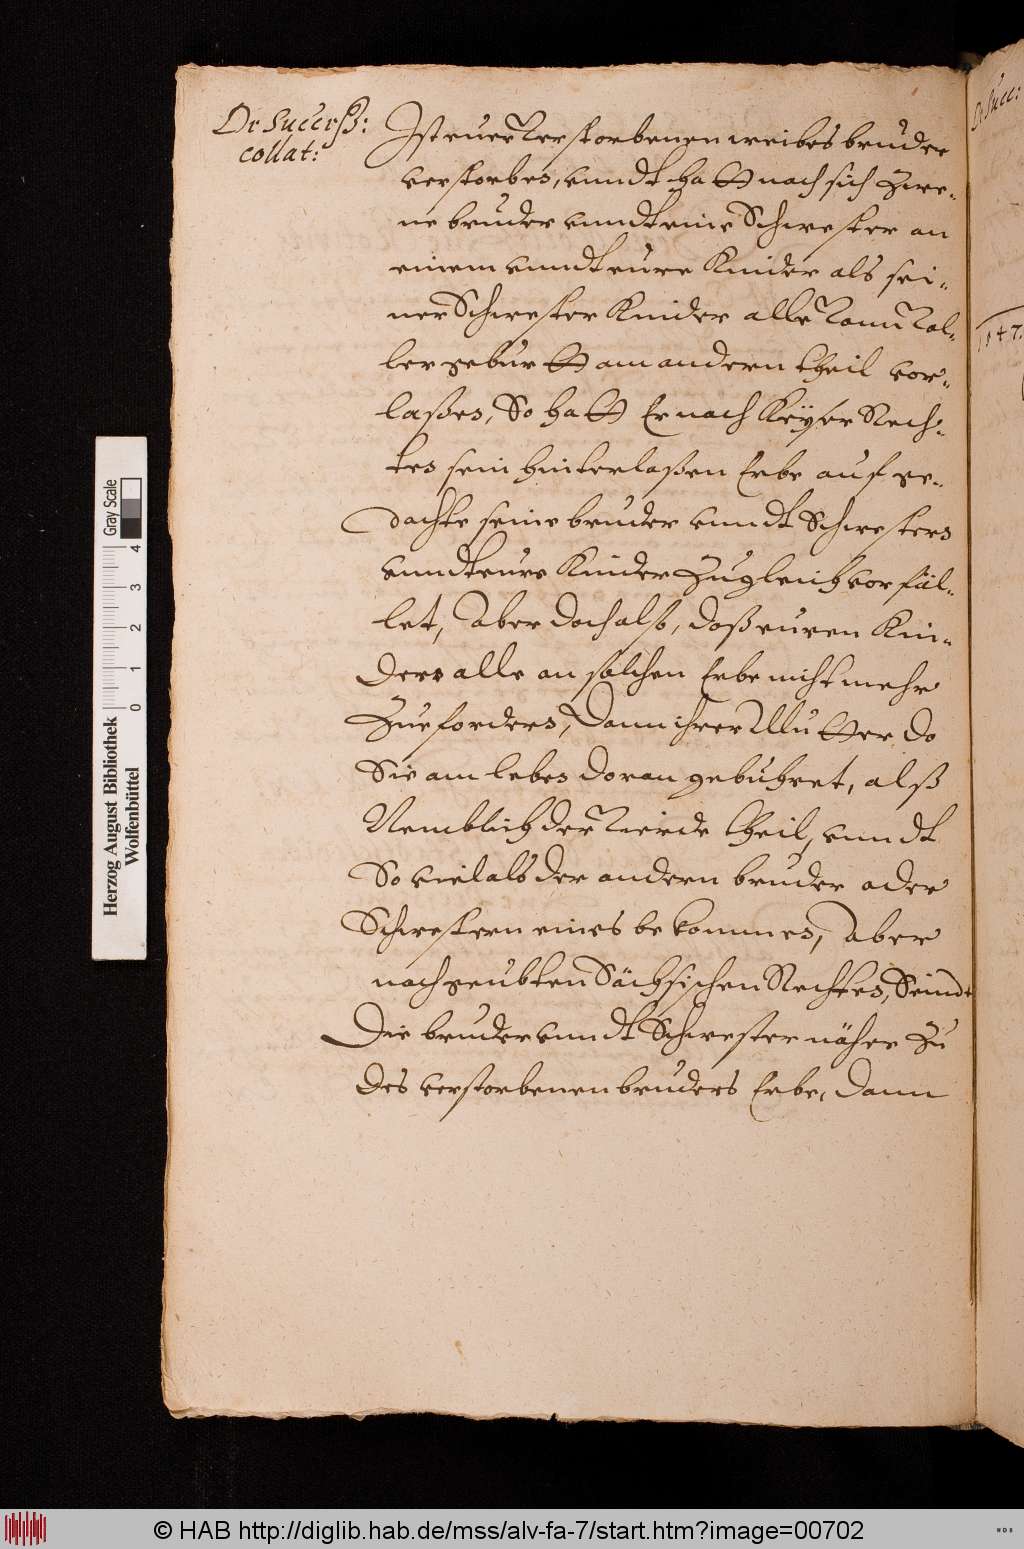 De Success:
collat:
Ist euer verstorbenen weibes bruder
verstorben, vnndt hatt nach sich Zwe-
ne bruder vnndt eine Schwester an
einem vnndt eure Kinder als sei-
ner Schwester Kinder alle vonn vol-
ler geburtt am andern theil vor-
laßen, So hatt Er nach Keyser Rech-
ten sein hinterlaßen Erbe auf ge-
dachte seine bruder vnndt Schwestern
vnndt eure Kinder Zugleich vorfäl-
let, Aber doch alß, daß euren Kin-
dern alle an solchen Erbe nicht mehr
Zue fordern, Dann ihrer Mutter do
Sie am leben doran gebuhret, alß
Nemblich der vierde theil, vnndt
So viel als der andern bruder oder
Schwestern eines bekommen, Aber
nach geubten Sächsischen Rechten, Seindt
Die bruder vnndt Schwester näher Zu
des verstorbenen bruders Erbe, Dann
De Succ:
1847.
Herzog August Bibliothek
Wolfenbüttel
0 1 2 3 4
Gray Scale
© HAB http://diglib.hab.de/mss/alv-fa-7/start.htm?image=00702